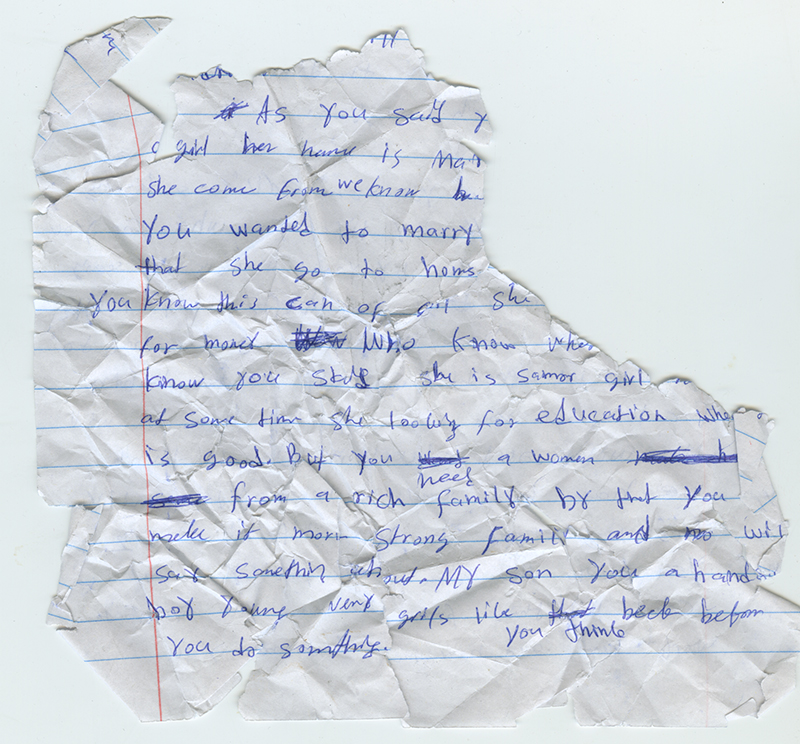 As you said y
girl her name is Mar
she come from we know
you wanted to marry
that she go to homs
you know this can of girl she
for money Who know when
know you study she is samar girl
at some tim she looking for education who
is good. But you need a women
from a rich family by that you
make it more strong family and wil
say somethin about. My son you a handso
boy young very girls like beek before
you think
you do something.